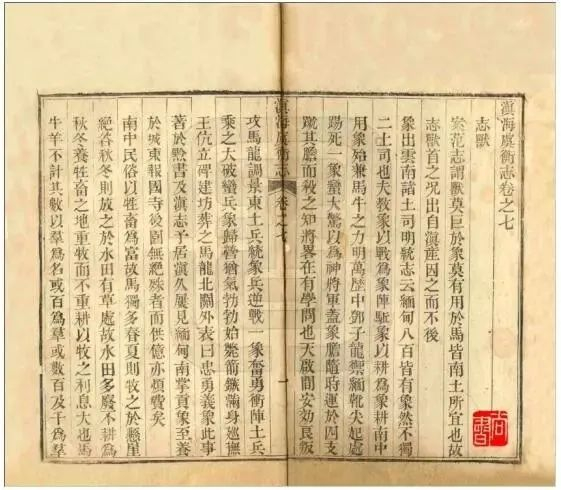 滇海虞衡志卷之七
志獸
案范志謂獸莫巨於象莫有用於馬皆南土所宜也故
志獸首之况出自滇產因之而不後
象出雲南諸土司明統志云緬甸八百皆有象然不獨
二土司也夫教象以戰為象陣駈象以耕為象耕南中
用象殆兼馬牛之力明萬歷中鄧子龍禦緬靴尖起處
踢死一象蠻大驚以為神將軍蓋象膽暗時運於四支
蹴其膽而殺之知將畧在有學問也天啟間安効良叛
滇海虞衡志 卷之七 一
攻馬龍調景東土兵統象兵逆戰一象奮勇衝陣土兵
乘之大破蠻兵象歸營猶氣勃勃始斃箭鏃滿身巡撫
王伉立碑建坊葬之馬龍北關外表曰忠勇義象此事
著於黔書及滇志予居滇久屢見緬甸南掌貢象至養
於城東報國寺後園無絕殊者而供億亦煩費矣
南中民俗以牲畜為富故馬獨多春夏則牧之於懸崖
絕谷秋冬則放之於水田有草處故水田多廢不耕為
秋冬養牲畜之地重牧而不重耕以牧之利息大也馬
牛羊不計其數以羣為名或百為羣或數百及千為羣